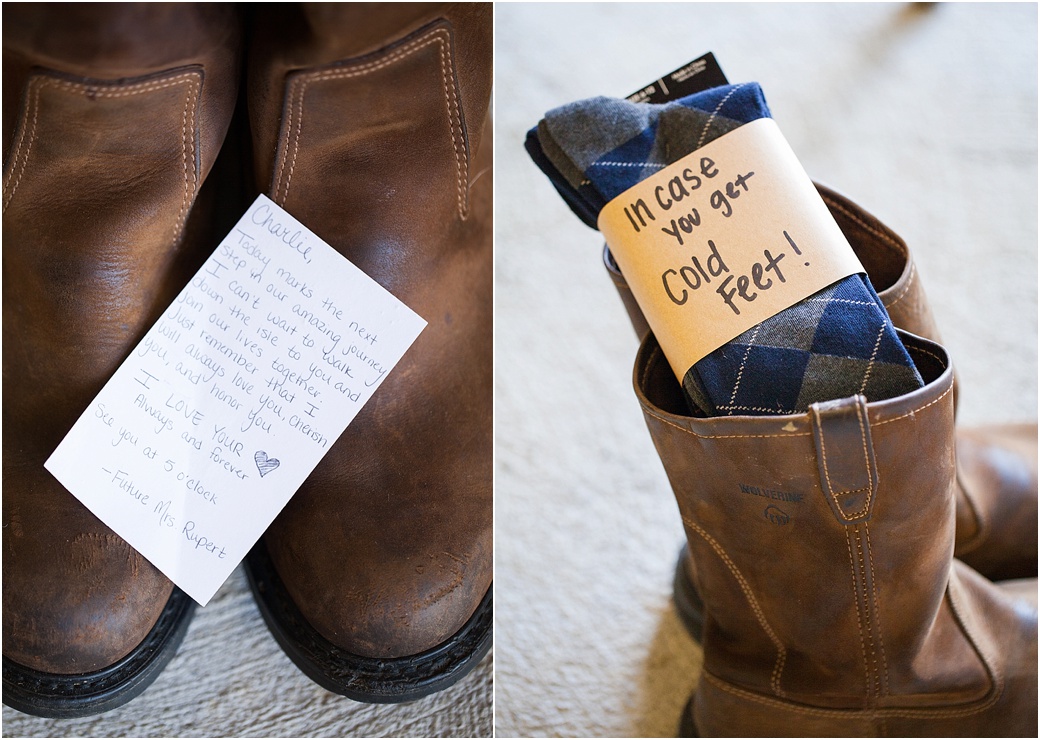 Charlie,
Today marks the next
step in our amazing journey
I can't wait to walk
down the isle to you and
join our lives together.
Just remember that I
will always love you, cherish
you, and honor you.
I LOVE YOUR ♥
Always and forever
See you at 5 o'clock
-Future Mrs Rupert
In case
you get
Cold
Feet!
WOLVERINE